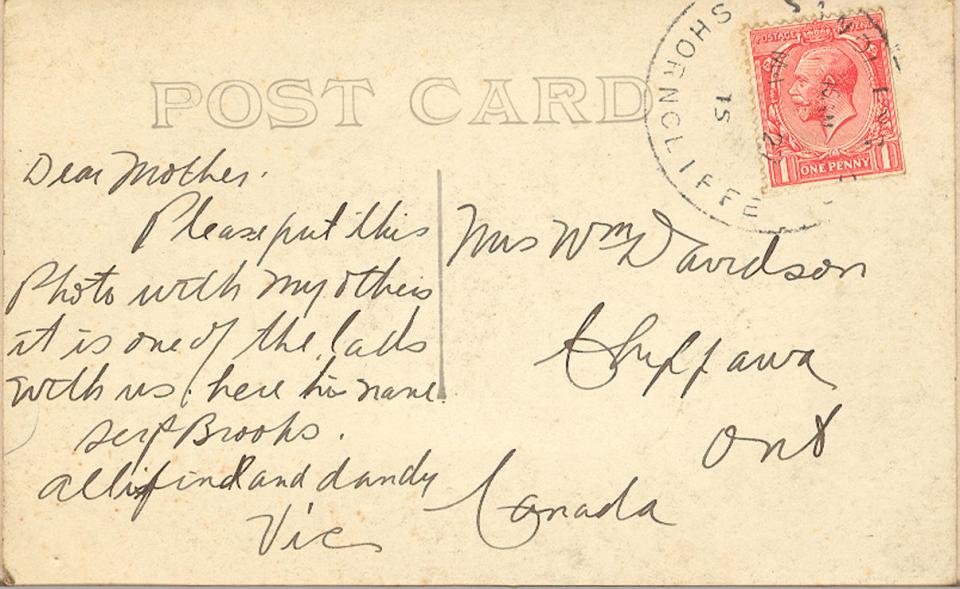 POST CARD
SHORNCLIFFE
15
POSTAGE REVENUE
ONE PENNY
1 1
Dear Mother.
Please put this
Photo with my others
it is one of the lads
with us here his name
Brooks.
all is fine and dandy
Vic
Mrs Wm Davidson
Chippawa
Ont
Canada